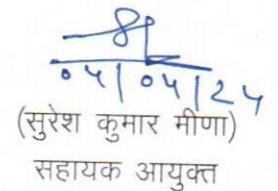 04/04/24
(सुरेश कुमार मीणा)
सहायक आयुक्त